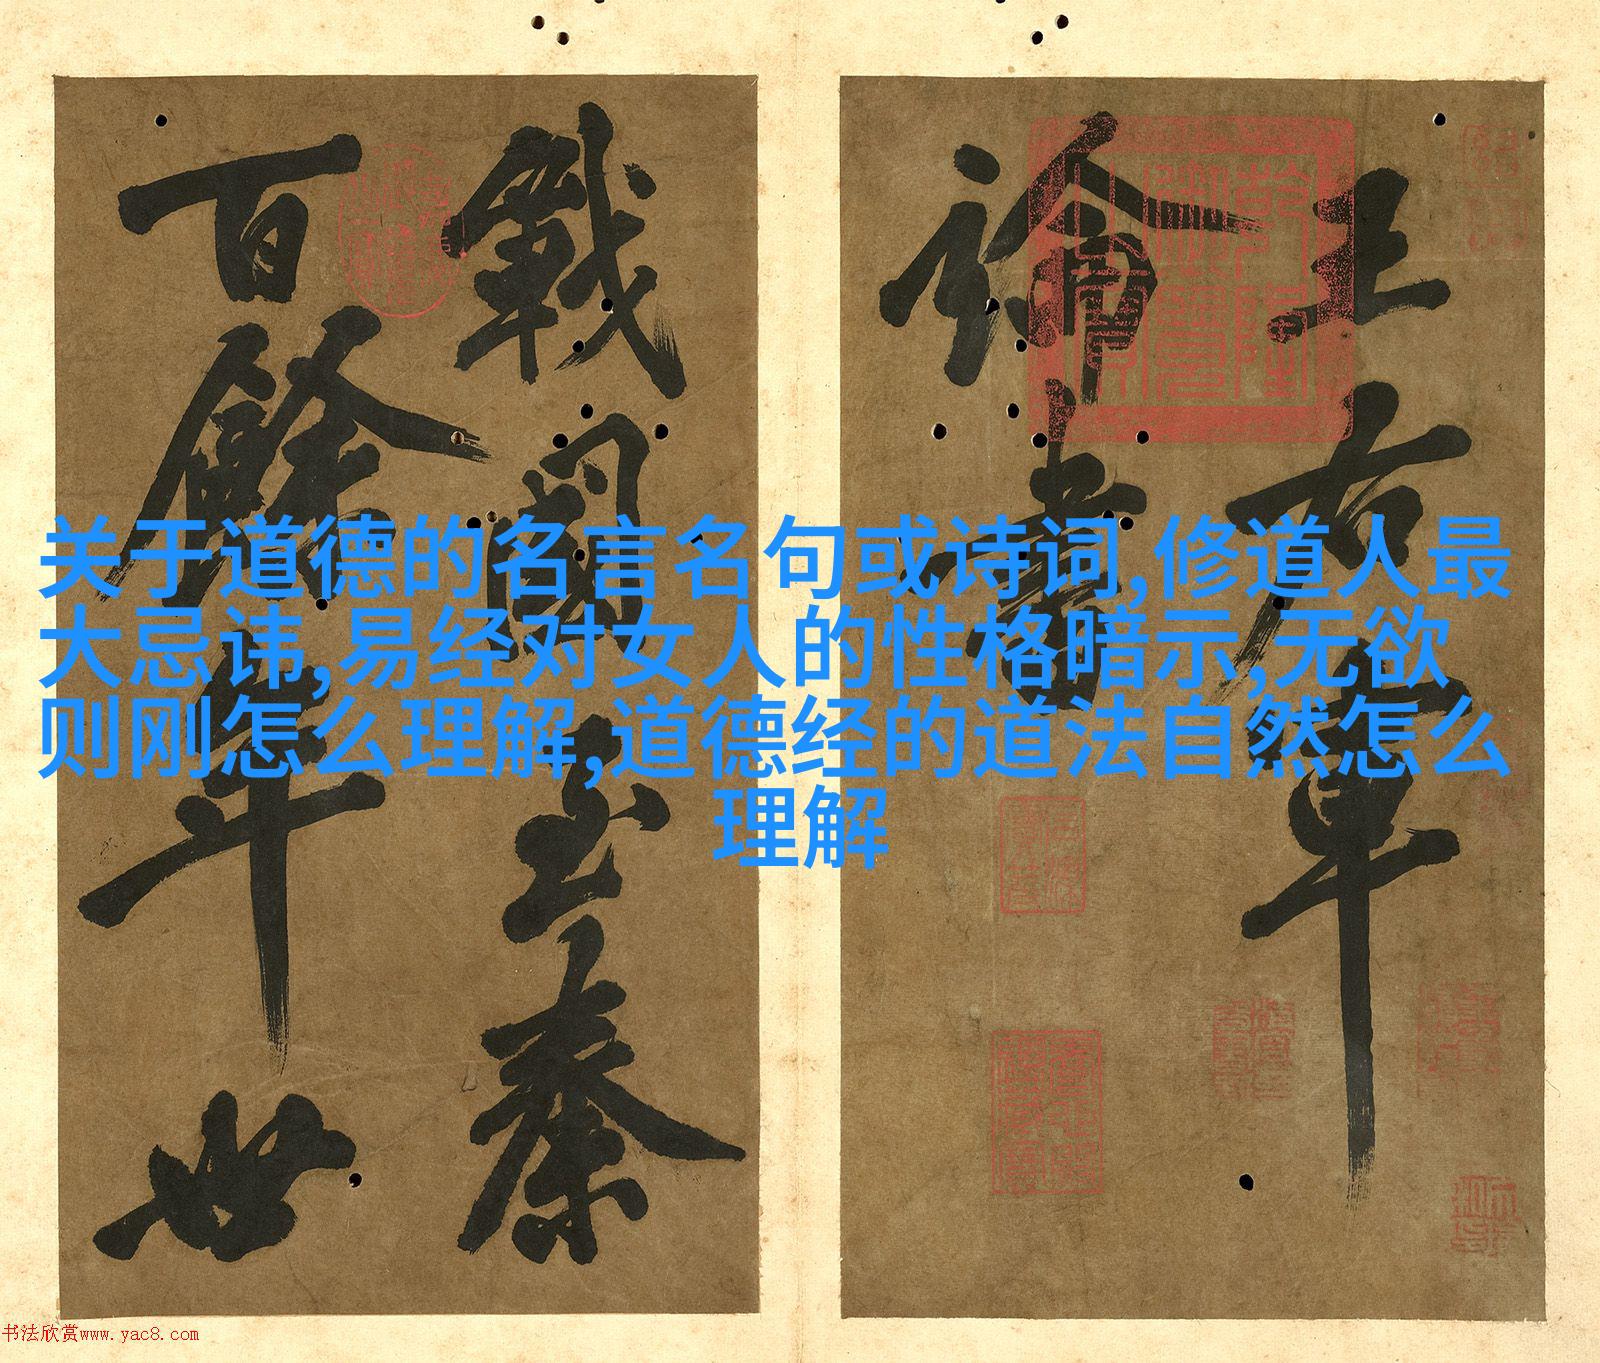 关于道德的名言名句或诗词,修道人最
大忌讳,易经对女人的性格暗示,无欲
则刚怎么理解,道德经的道法自然怎么
理解
王右軍
論書
戰國至秦
百餘年世
乾隆
御覽
之寶
书法欣赏www.yac8.com